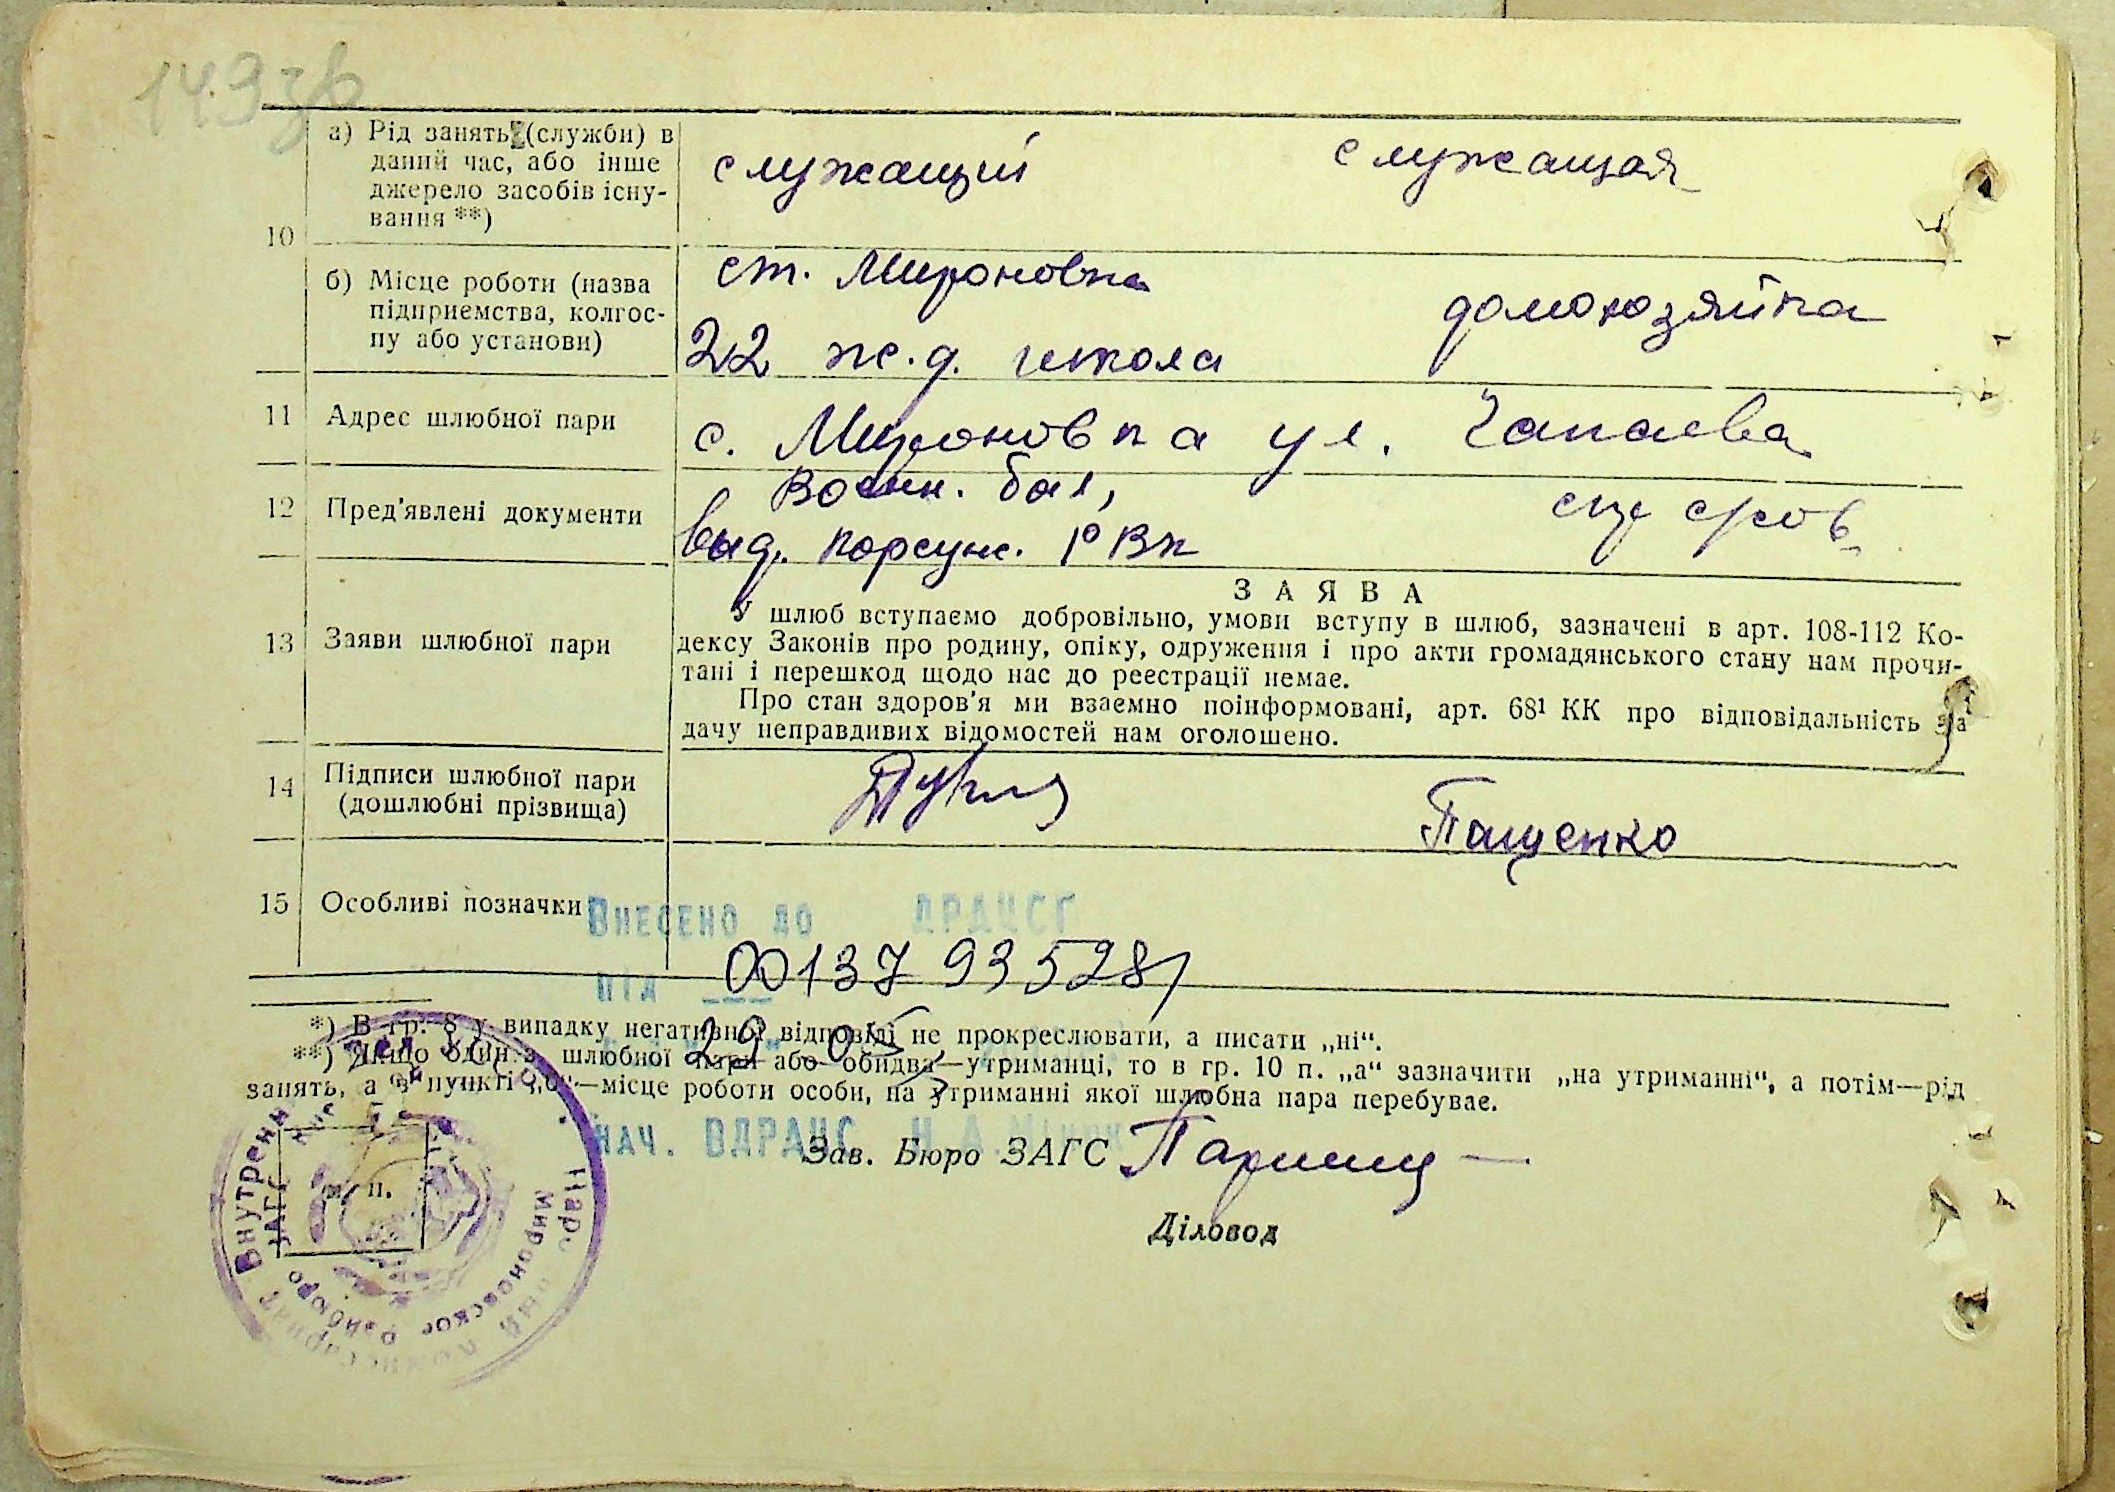 149зв
а) Рід занять (служби) в
даний час, або інше
джерело засобів існу-
вання **)
служащий служащая
10
б) Місце роботи (назва
підприємства, колгос-
пу або установи)
ст. Мироновка
22 ж.д. школа
домохозяйка
11 Адрес шлюбної пари
с. Мироновка ул. Чапаева
12 Пред'явлені документи
Воен. бил,
выд. Корсунс. РВК
13 Заяви шлюбної пари
ЗАЯВА
У шлюб вступаємо добровільно, умови вступу в шлюб, зазначені в арт. 108-112 Ко-
дексу Законів про родину, опіку, одруження і про акти громадянського стану нам прочи-
тані і перешкод щодо нас до реєстрації немає.
Про стан здоров'я ми взаємно поінформовані, арт. 68¹ КК про відповідальність за
дачу неправдивих відомостей нам оголошено.
14 Підписи шлюбної пари
(дошлюбні прізвища)
Пащенко
15 Особливі позначки
Внесено до ДРАЦСГ
під 00137935281
29 05
*) В гр. 8 у випадку негативної відповіді не прокреслювати, а писати „ні“.
**) Якщо один з шлюбної пари або обидва—утриманці, то в гр. 10 п. „а“ зазначити „на утриманні“, а потім—рід
занять, а в пункті „б“—місце роботи особи, на утриманні якої шлюбна пара перебуває.
Нач. ВДРАЦС Н.А.
Зав. Бюро ЗАГС
Діловод
м. п.
Внутрен
ЗАГС
Мироновское райбюро